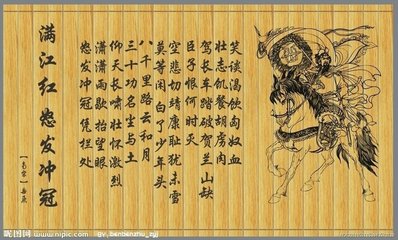 满江红 怒发冲冠
怒发冲冠凭栏处
潇潇雨歇抬望眼
仰天长啸壮怀激烈
三十功名尘与土
八千里路云和月
莫等闲白了少年头
空悲切靖康耻犹未雪
臣子恨何时灭
驾长车踏破贺兰山缺
壮志饥餐胡虏肉
笑谈渴饮匈奴血
昵图网
www.nipic.com